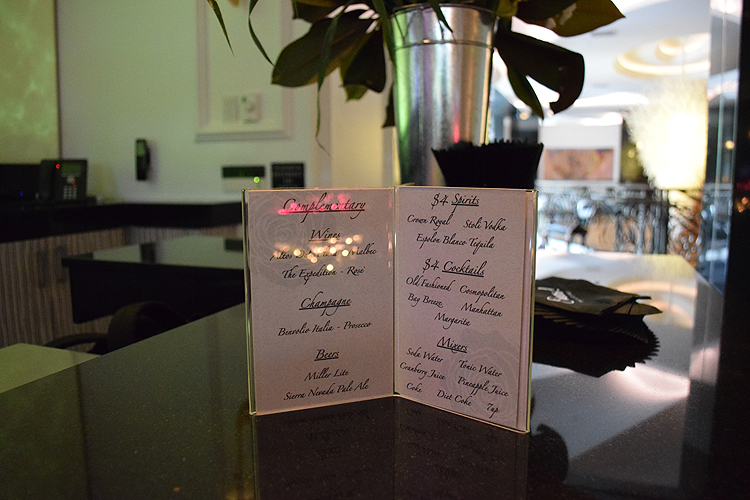 Complementary
Wines
Altos Malbec
The Expedition - Rosé
Champagne
Benvolio Italia - Prosecco
Beers
Miller Lite
Sierra Nevada Pale Ale
$4 Spirits
Crown Royal Stoli Vodka
Espolon Blanco Tequila
$4 Cocktails
Old Fashioned Cosmopolitan
Bay Breeze Manhattan
Margarita
Mixers
Soda Water Tonic Water
Cranberry Juice Pineapple Juice
Coke Diet Coke 7up